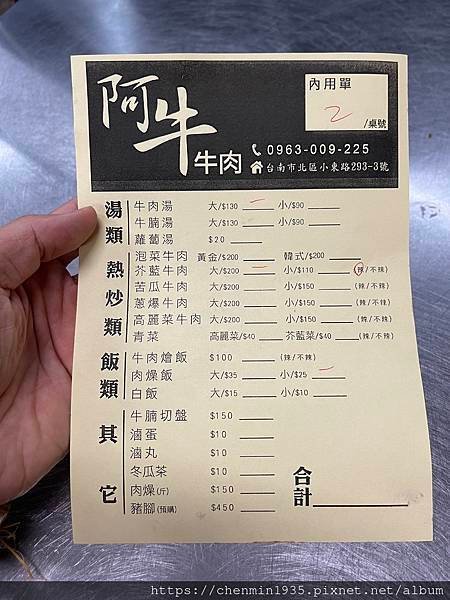 阿牛
牛肉
內用單
2
/桌號
0963-009-225
台南市北區小東路293-3號
湯類
牛肉湯 大/$130 一 小/$90
牛腩湯 大/$130 小/$90
蘿蔔湯 $20
熱炒類
泡菜牛肉 黃金/$200 韓式/$200
芥藍牛肉 大/$200 一 小/$110 (辣/不辣)
苦瓜牛肉 大/$200 小/$150 (辣/不辣)
蔥爆牛肉 大/$200 小/$150 (辣/不辣)
高麗菜牛肉 大/$200 小/$150 (辣/不辣)
青菜 高麗菜/$40 芥藍菜/$40 (辣/不辣)
飯類
牛肉燴飯 $100 (辣/不辣)
肉燥飯 大/$35 小/$25 一
白飯 大/$15 小/$10
其它
牛腩切盤 $150
滷蛋 $10
滷丸 $10
冬瓜茶 $10
肉燥(斤) $150
豬腳(預購) $450
合計
https://chenmin1935.pixnet.net/album